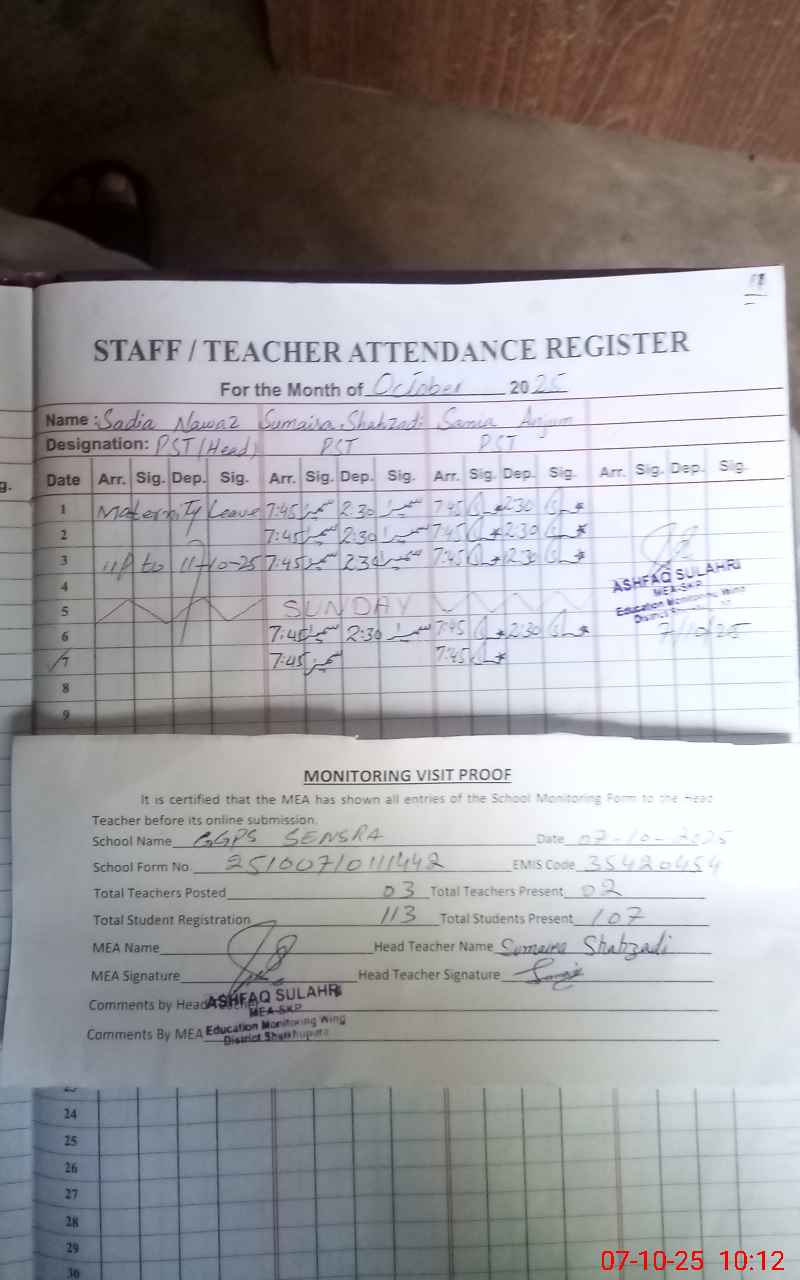 18
STAFF / TEACHER ATTENDANCE REGISTER
For the Month of October 2025
Name : Sadia Nawaz Sumaira Shahzadi Samia Anjum
Designation: PST (Head) PST PST
g. Date Arr. Sig. Dep. Sig. Arr. Sig. Dep. Sig. Arr. Sig. Dep. Sig. Arr. Sig. Dep. Sig.
1 Maternity Leave 7:45 سمیرا 2:30 سمیرا 7:45 2:30
2 7:45 سمیرا 2:30 سمیرا 7:45 2:30
3 up to 11-10-25 7:45 سمیرا 2:30 سمیرا 7:45 2:30
4
ASHFAQ SULAHRI
MEA-SKP
Education Monitoring Wing
District
5 SUNDAY
6 7:45 سمیرا 2:30 سمیرا 7:45 2:30 7/10/25
7 7:45 سمیرا 7:45
8
9
MONITORING VISIT PROOF
It is certified that the MEA has shown all entries of the School Monitoring Form to the Head
Teacher before its online submission.
School Name GGPS SENSRA Date 07-10-2025
School Form No. 2510070111442 EMIS Code 35420454
Total Teachers Posted 03 Total Teachers Present 02
Total Student Registration 113 Total Students Present 107
MEA Name Head Teacher Name Sumaira Shahzadi
MEA Signature Head Teacher Signature
Comments by Head Teacher
ASHFAQ SULAHRI
MEA-SKP
Comments By MEA
Education Monitoring Wing
District Sheikhupura
23
24
25
26
27
28
29
30
07-10-25 10:12